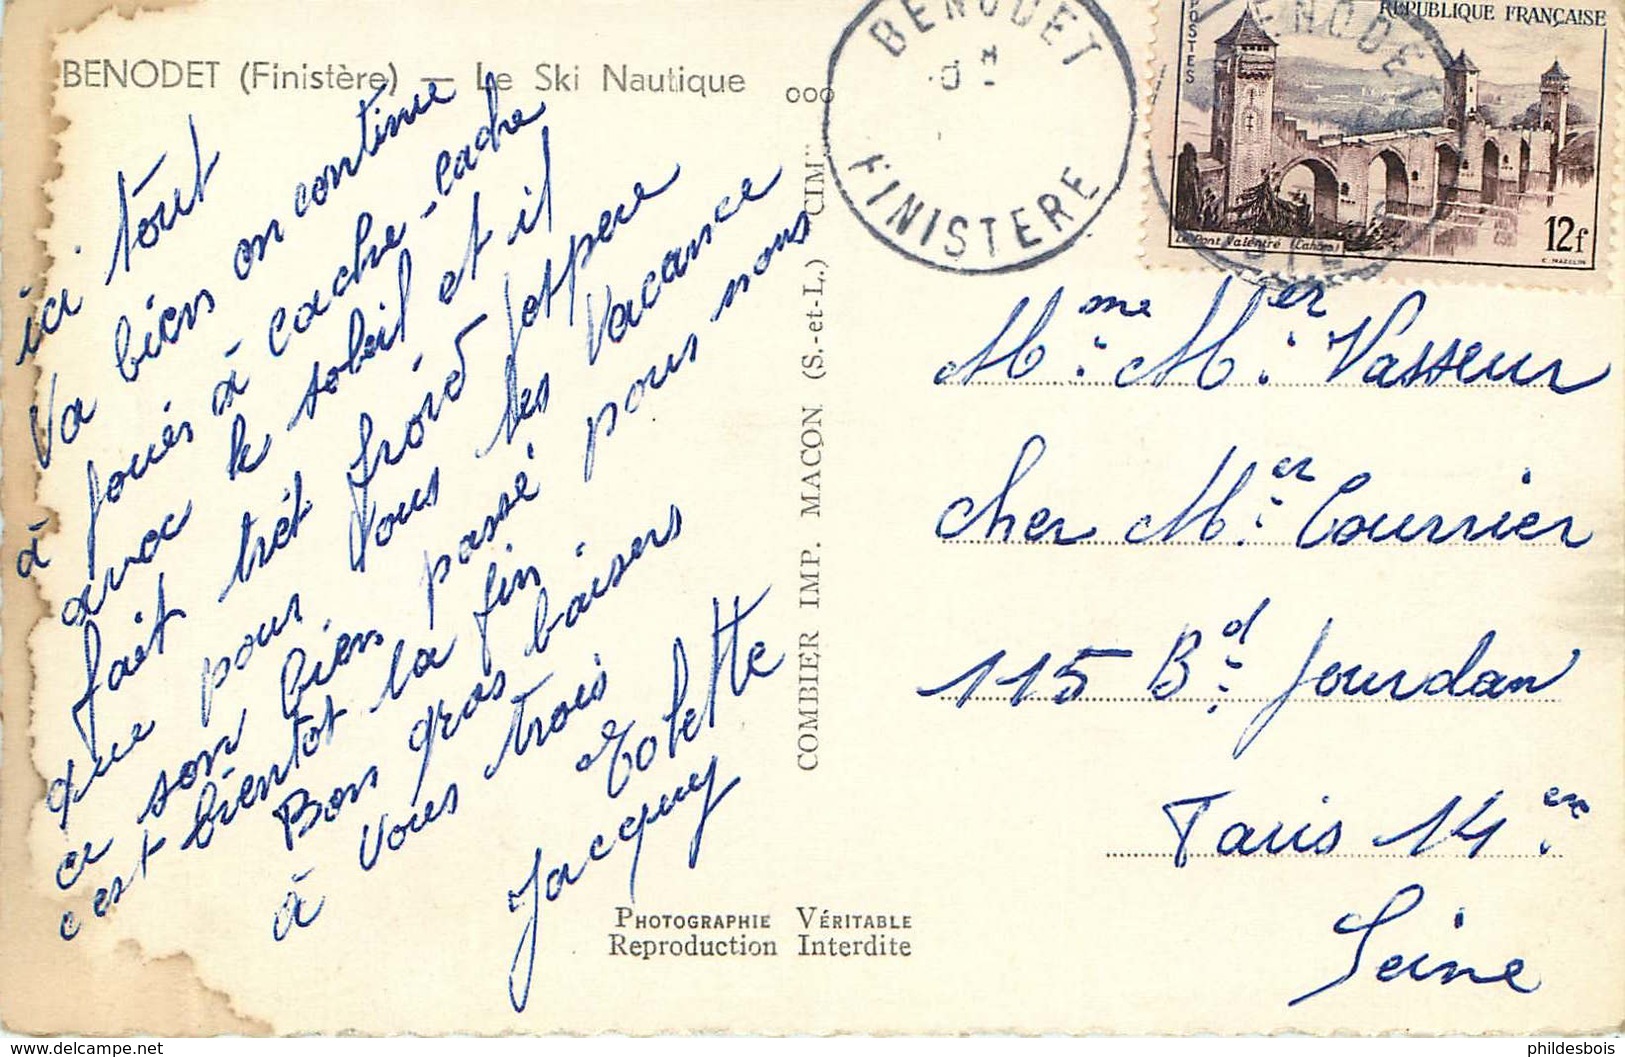 BENODET (Finistère) — Le Ski Nautique
ici tout
va bien on continue
à jouès à cache-cache
avec le soleil et il
fait trèt froid j'espere
que pour vous les vacance
ce son bien passé pour nous
c'est bientot la fin
Bons gros baisers
à vous trois
Colette
Jacquy
COMBIER IMP. MACON (S.-et-L.) "CIM"
PHOTOGRAPHIE VÉRITABLE
Reproduction Interdite
BENODET
FINISTERE
POSTES
REPUBLIQUE FRANÇAISE
Le Pont Valentré (Cahors)
12f
C. MAZELIN
Mme. Mer. Vasseur
cher Mer. Courrier
115 Bd. Jourdan
Paris 14 eme.
Seine
phildesbois